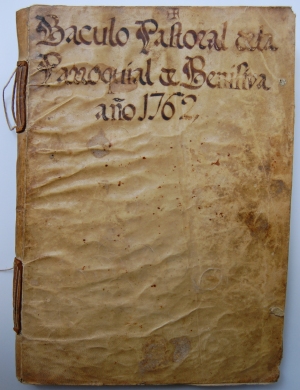 Baculo Pastoral de la
Parroquial de Benisiva
año 1762